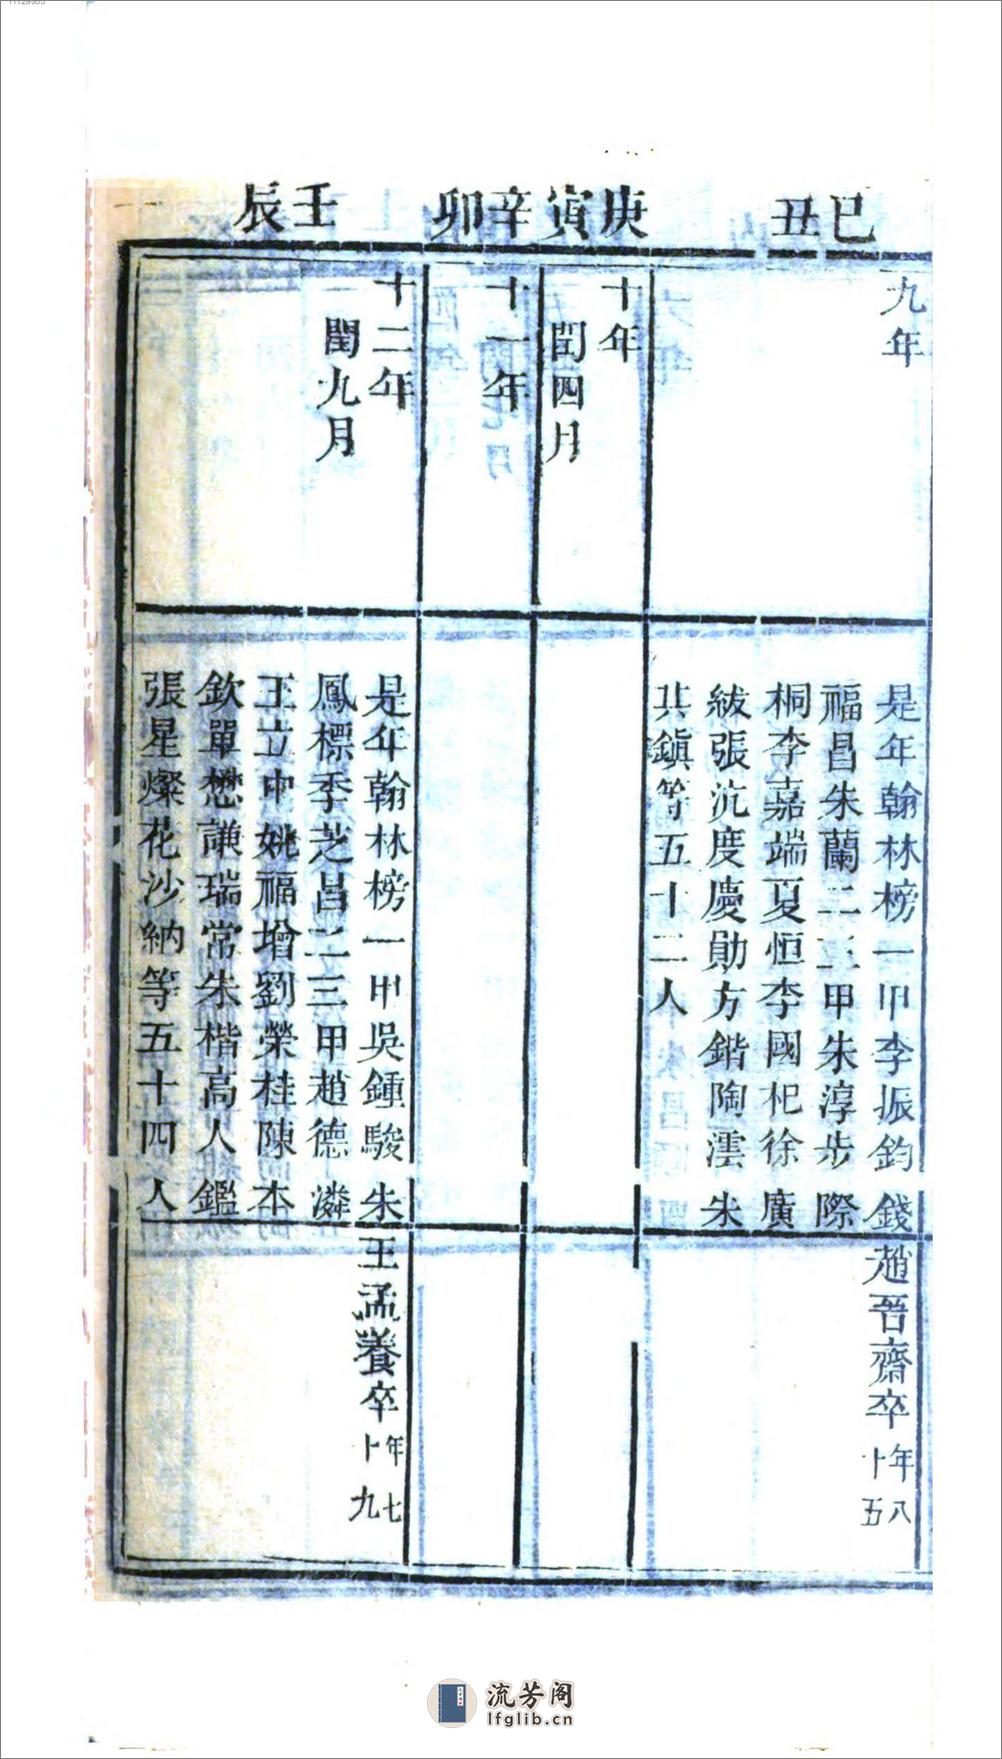 11129505
己丑
九年
是年翰林榜一甲李振鈞錢
福昌朱蘭二三甲朱淳步際
桐李嘉端夏恒李國杞徐廣
紱張沆度慶勛方鍇陶澐朱
其鎮等五十二人
趙晉齋卒年八十五
庚寅
十年
閏四月
辛卯
十一年
壬辰
十二年
閏九月
是年翰林榜一甲吳鍾駿朱
鳳標季芝昌二三甲趙德潾
王立中姚福增劉榮桂陳本
欽單懋謙瑞常朱楷高人鑑
張星燦花沙納等五十四人
王孟養卒年七十九
流芳阁
lfglib.cn